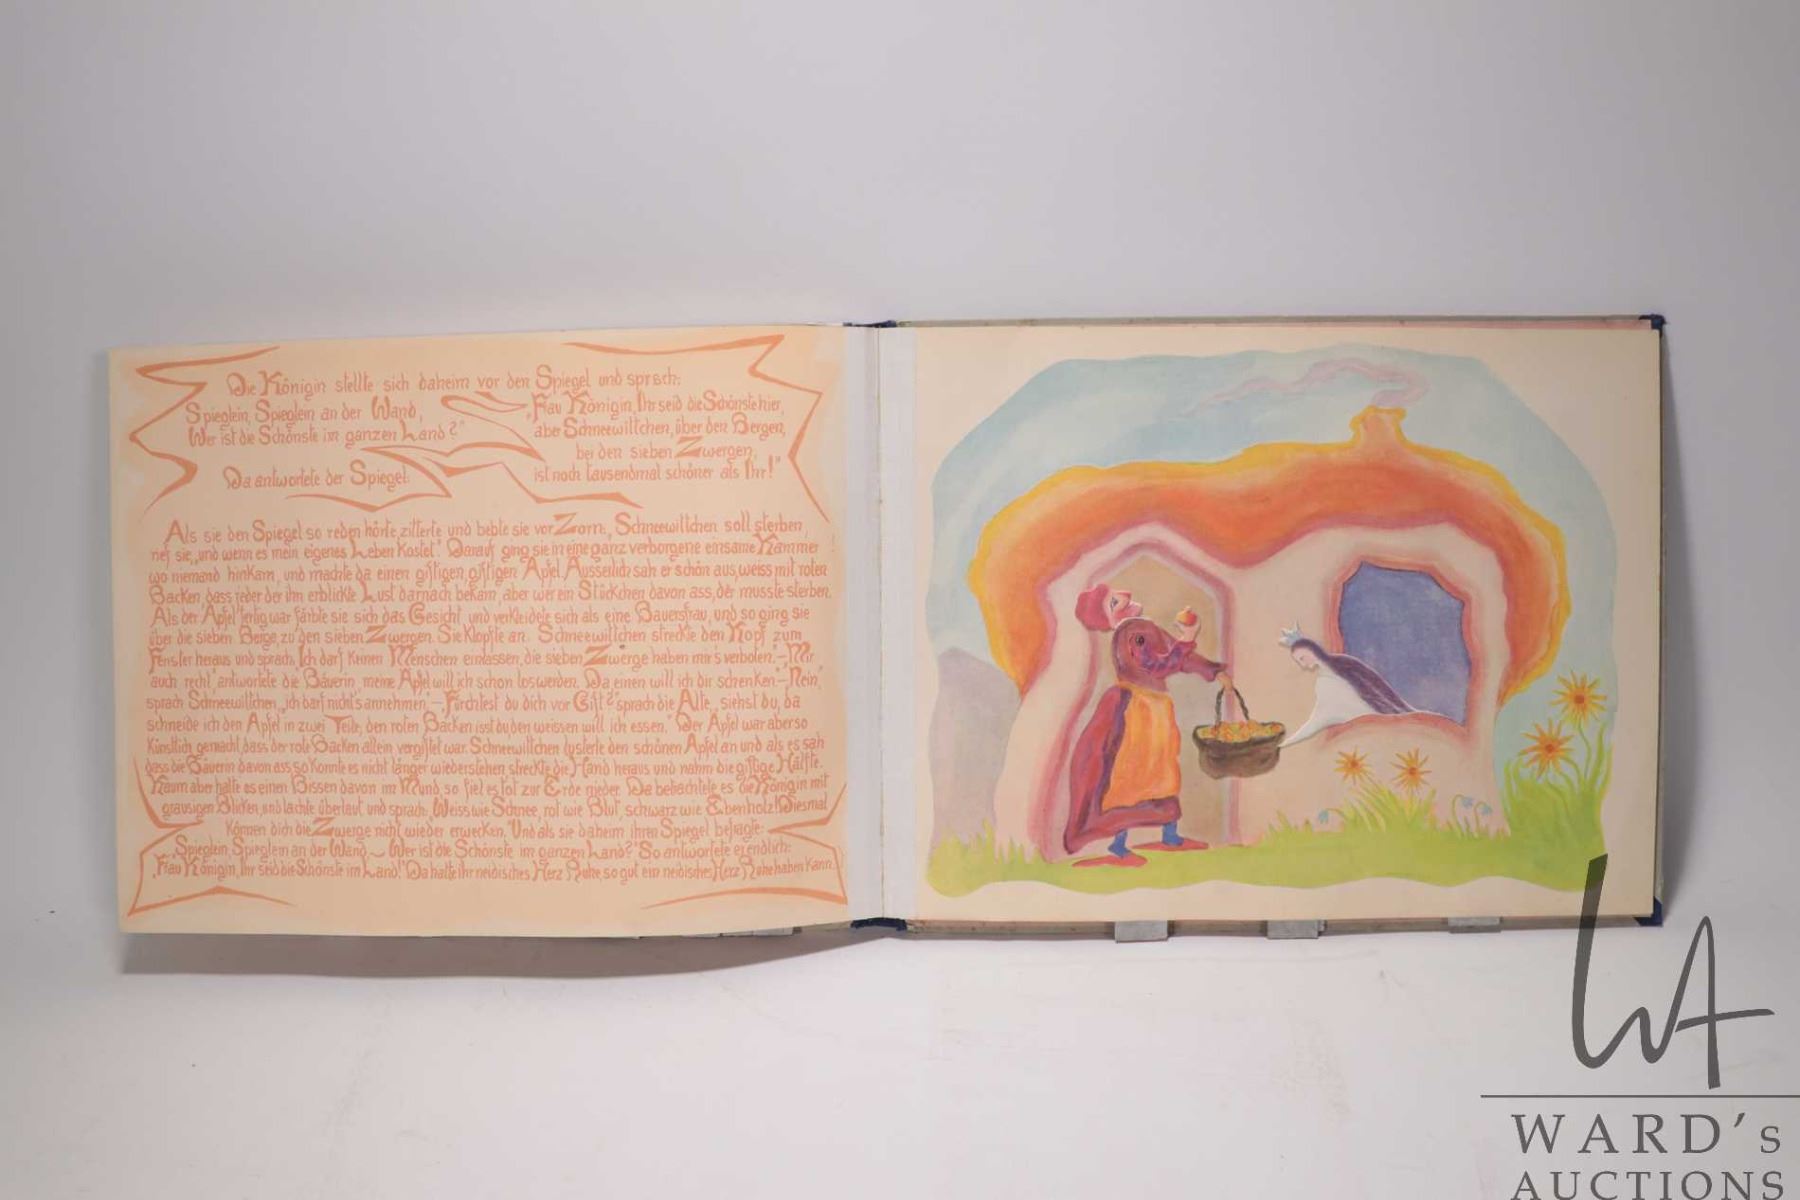 Die Königin stellte sich daheim vor den Spiegel und sprach:
Spieglein, Spieglein an der Wand,
Wer ist die Schönste im ganzen Land?"
Da antwortete der Spiegel:
„Frau Königin, Ihr seid die Schönste hier,
aber Schneewittchen, über den Bergen,
bei den sieben Zwergen,
ist noch tausendmal schöner als Ihr!"
Als sie den Spiegel so reden hörte, zitterte und bebte sie vor Zorn. „Schneewittchen soll sterben,
rief sie, „und wenn es mein eigenes Leben kostet." Darauf ging sie in eine ganz verborgene einsame Kammer
wo niemand hinkam, und machte da einen giftigen, giftigen Apfel. Ausserlich sah er schön aus, weiss mit roten
Backen, dass jeder der ihn erblickte Lust darnach bekam, aber wer ein Stückchen davon ass, der musste sterben.
Als der Apfel fertig war färbte sie sich das Gesicht und verkleidete sich als eine Bauersfrau, und so ging sie
über die sieben Berge, zu den sieben Zwergen. Sie klopfte an. Schneewittchen streckte den Kopf zum
Fenster heraus und sprach, Ich darf keinen Menschen einlassen, die sieben Zwerge haben mir's verboten." – „Mir
auch recht" antwortete die Bäuerin, „meine Äpfel will ich schon loswerden. Da einen will ich dir schenken. – „Nein,"
sprach Schneewittchen, „ich darf nichts annehmen." – „Fürchtest du dich vor Gift?" sprach die Alte, „siehst du, da
schneide ich den Apfel in zwei Teile, den roten Backen isst du, den weissen will ich essen." Der Apfel war aber so
künstlich gemacht, dass der rote Backen allein vergiftet war. Schneewittchen lusterte den schönen Apfel an und als es sah
dass die Bäuerin davon ass, so konnte es nicht länger wiederstehen, streckte die Hand heraus und nahm die giftige Hälfte.
Kaum aber hatte es einen Bissen davon im Mund so fiel es tot zur Erde nieder. Da betrachtete es die Königin mit
grausigen Blicken, und lachte überlaut und sprach: „Weiss wie Schnee, rot wie Blut, schwarz wie Ebenholz! Diesmal
können dich die Zwerge nicht wieder erwecken." Und als sie daheim ihren Spiegel befragte:
„Spieglein, Spieglein an der Wand ~ Wer ist die Schönste im ganzen Land?" So antwortete er endlich:
„Frau Königin, Ihr seid die Schönste im Land!" Da hatte ihr neidisches Herz Ruhe, so gut ein neidisches Herz Ruhe haben kann.
WA
WARD's
AUCTIONS